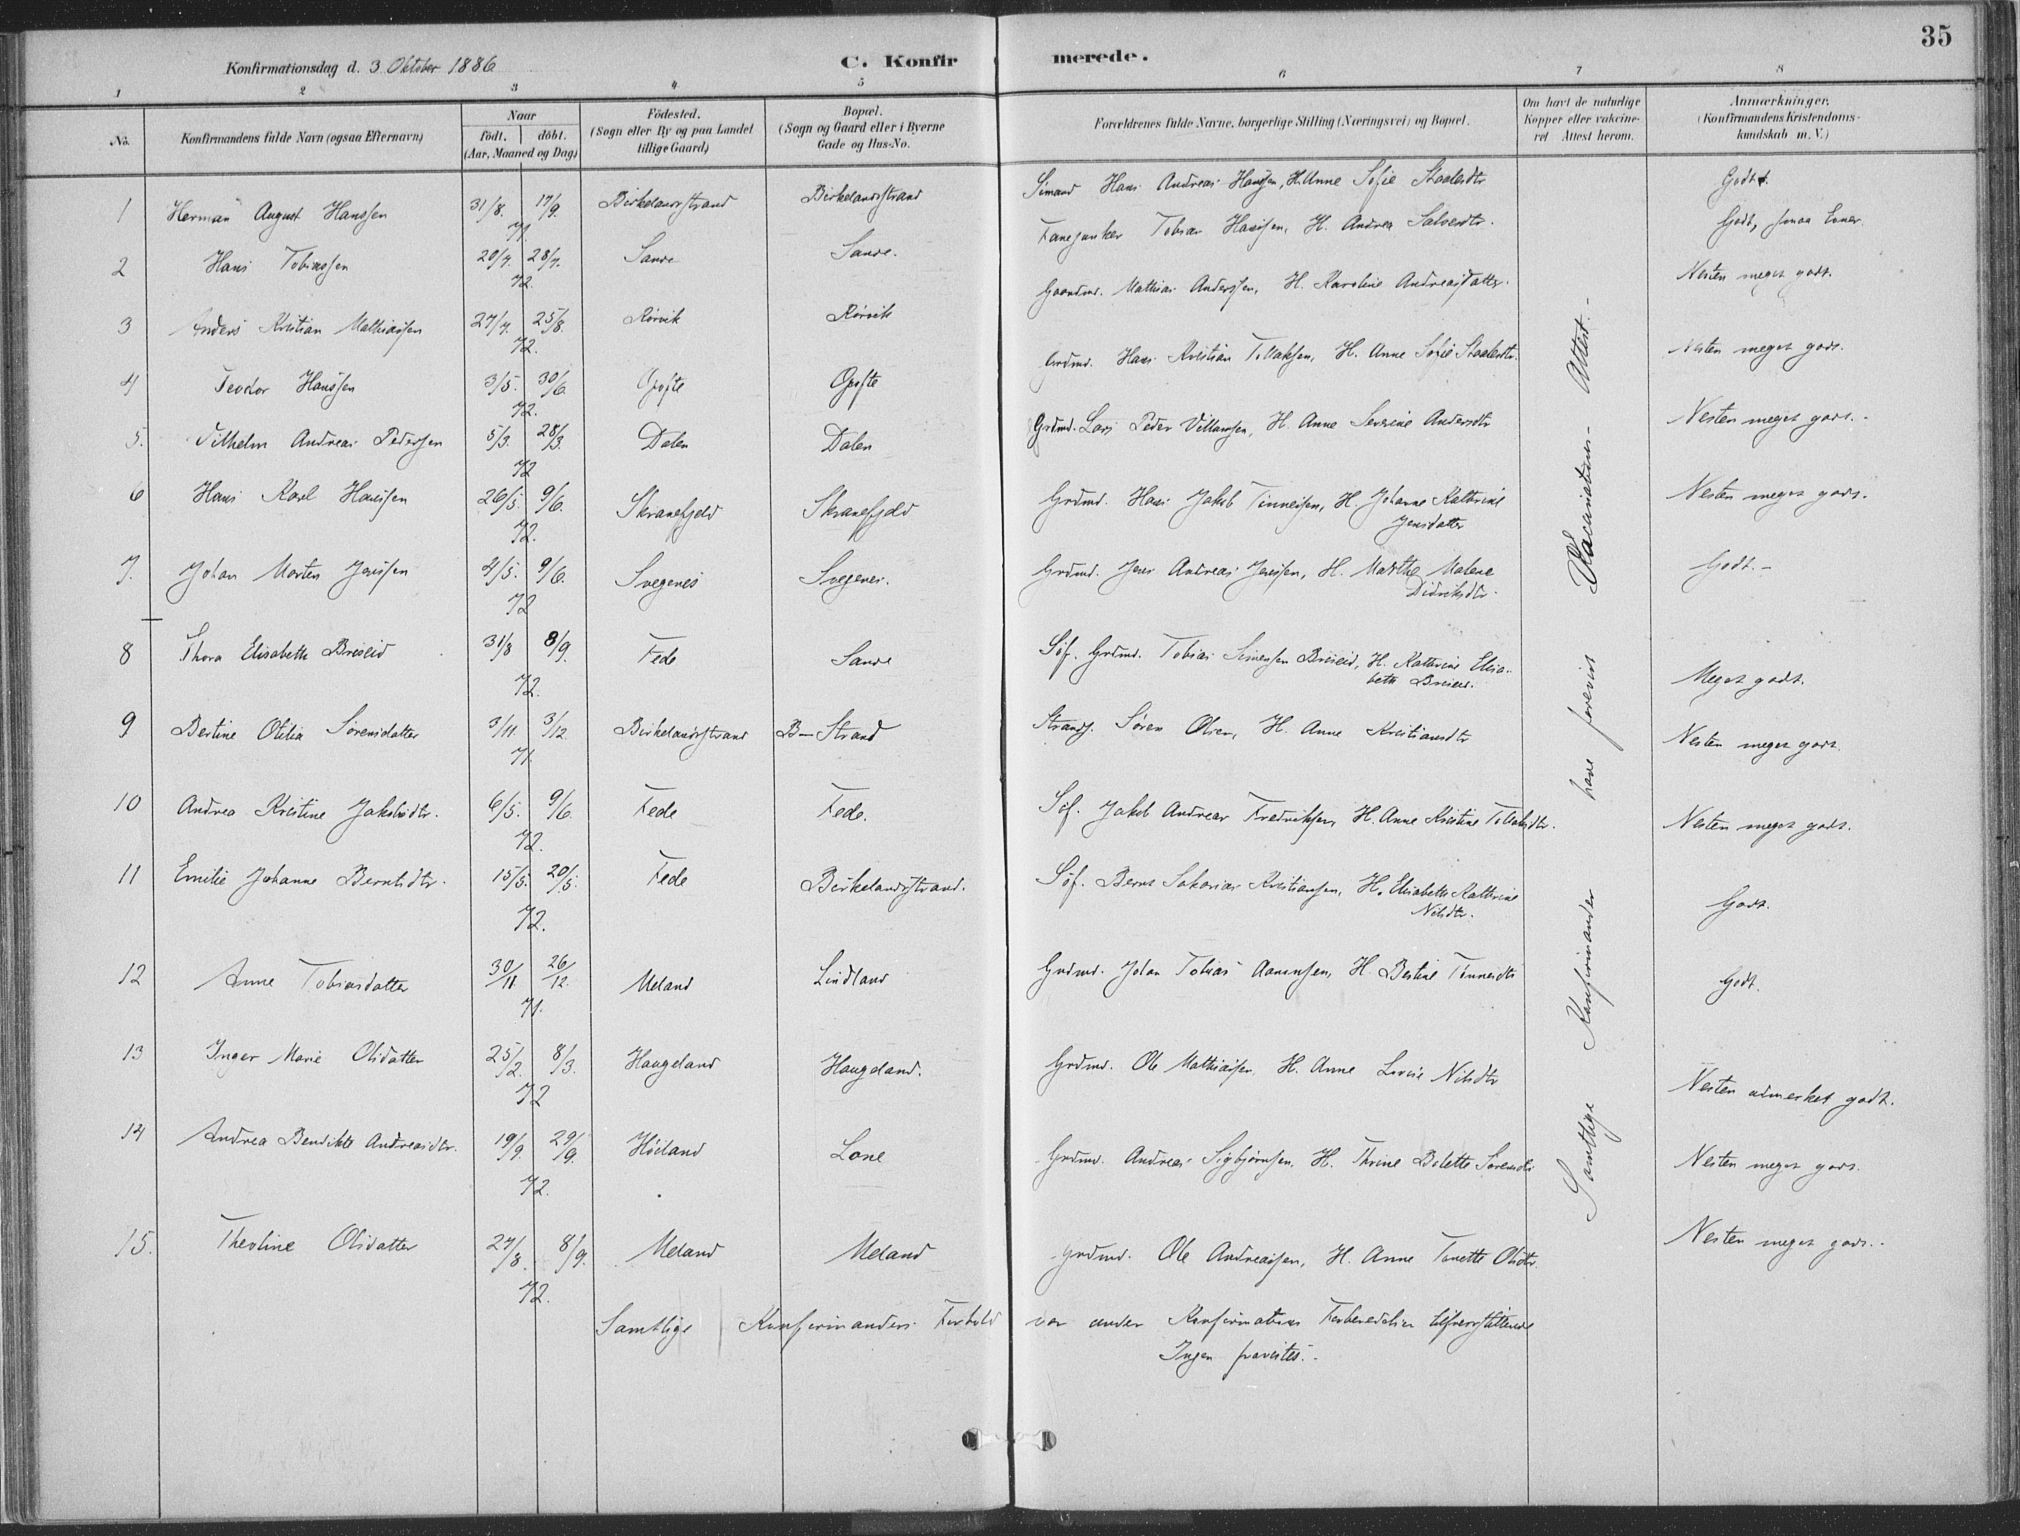 35
Konfirmationsdag d. 3 Oktober 1886
C. Konfirmerede.
1 2 3 4 5 6 7 8
No. Konfirmandens fulde Navn (ogsaa Efternavn) Naar født. døbt. (Aar, Maaned og Dag) Fødested. (Sogn eller By og paa Landet tillige Gaard) Bopæl. (Sogn og Gaard eller i Byerne Gade og Hus-No. Forældrenes fulde Navne, borgerlige Stilling (Næringsvei) og Bopæl. Om havt de naturlige Kopper eller vakcineret Attest herom. Anmærkninger. (Konfirmandens Kristendomskundskab m. V.)
1 Herman August Hanssen 31/8. 17/9. 71. Birkelandsstrand Birkelandsstrand Hans Andreas Hanssen, H. Anne Sofie Staalesdtr Godt.
2 Hans Tobiassen 20/7. 28/7. 72. Sande Sande. Fanejunker Tobias Hanssen, H. Andrea Salvesdtr. Godt, smaa Evner.
3 Anders Kristian Mathiassen 27/7. 25/8. 72. Rørvik Rørvik Gaardmd. Mathias Anderssen, H. Karoline Andreasdatter. Nesten meget godt.
4 Teodor Hanssen 3/5. 30/6. 72. Opofte Opofte Grdmd. Hans Kristian Tollaksen, H. Anne Sofie Staalesdtr. Nesten meget godt.
5. Vilhelm Andreas Pedersen 5/3. 28/3. 72 Dalen Dalen Grdmd. Lars Peder Villumsen, H. Anne Severine Andersdtr Nesten meget godt.
6 Hans Karl Hanssen 26/5. 9/6. 72. Skranefjeld Skranefjeld Grdmd. Hans Jakob Tinnessen, H. Johanne Kathrine Jensdatter Nesten meget godt.
7. Johan Morten Jenssen 4/5. 9/6. 72 Svegenes Svegenes. Grdmd. Jens Andreas Jenssen, H. Marthe Malene Didriksdtr. Godt.
8 Thora Elisabeth Breseid 31/8 8/9. 72. Fede Sande Søf. Grdmd. Tobias Simensen Breseid, H. Kathrine Elisabeth Breseid. Meget godt.
9 Bertine Otilia Sørensdatter 3/11. 3/12. 71. Birkelandsstrand B-Strand Strands. Søren Olsen, H. Anne Kristiansdtr Nesten meget godt.
10 Andrea Kristine Jakobsdtr. 6/5. 9/6. 72. Fede Fede. Søf. Jakob Andreas Fredriksen, H. Anne Kristine Tollaksdtr. Nesten meget godt.
11 Emilie Johanne Berntsdtr. 15/5. 20/5. 72. Fede Birkelandsstrand. Søf. Bernt Sakarias Kristiansen, H. Elisabeth Kathrine Nilsdtr. Godt.
12 Anne Tobiasdatter 30/11 26/12. 71. Meland Lindland Grdmd. Johan Tobias Aanensen, H. Bertine Tinnesdtr Godt.
13 Inger Marie Olsdatter 25/2. 8/3. 72 Haugeland Haugeland. Grdmd. Ole Mathiassen, H. Anne Lovise Nilsdtr Nesten udmerket godt.
14 Andrea Bendikte Andreasdtr. 19/9. 29/9. 72. Høiland Lone Grdmd. Andreas Sigbjørnsen, H. Thrine Bolette Sørensdtr Nesten meget godt.
15. Theoline Olsdatter 27/8. 8/9. 72. Meland Meland Grdmd. Ole Andreassen, H. Anne Tonette Olsdtr. Nesten meget godt.
Samtlige Konfirmander have forevist Vaccinations-Attest.
Samtlige Konfirmanders Forhold var under Konfirmations Forberedelsen tilfredsstillende
Ingen fraviistes.